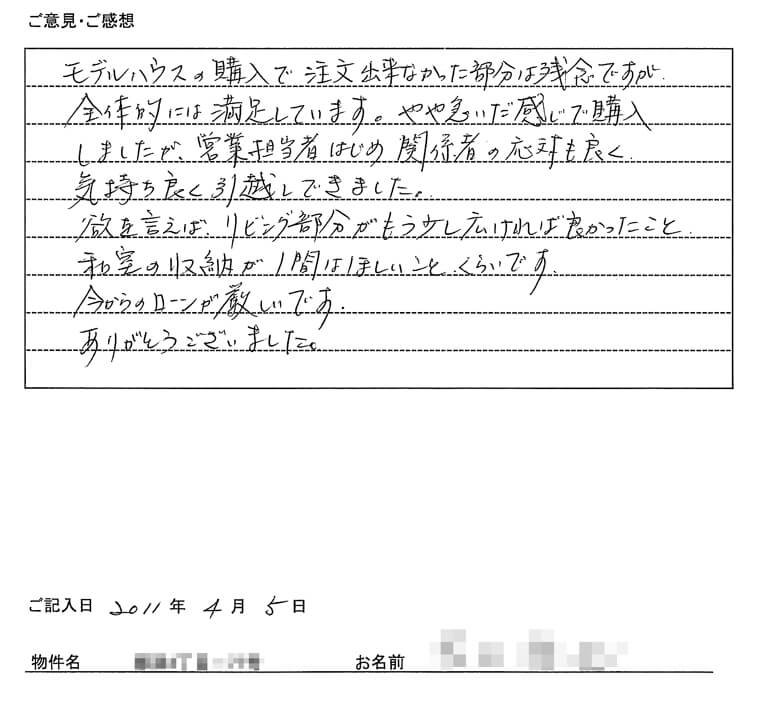 ご意見・ご感想
モデルハウスの購入で注文出来なかった部分は残念ですが、
全体的には満足しています。やや急いだ感じで購入
しましたが、営業担当者はじめ関係者の応対も良く、
気持ち良く引越しできました。
欲を言えば、リビング部分がもう少し広ければ良かったこと、
和室の収納が1間はほしいことくらいです。
今からのローンが厳しいです。
ありがとうございました。
ご記入日 2011年 4月 5日
物件名 お名前